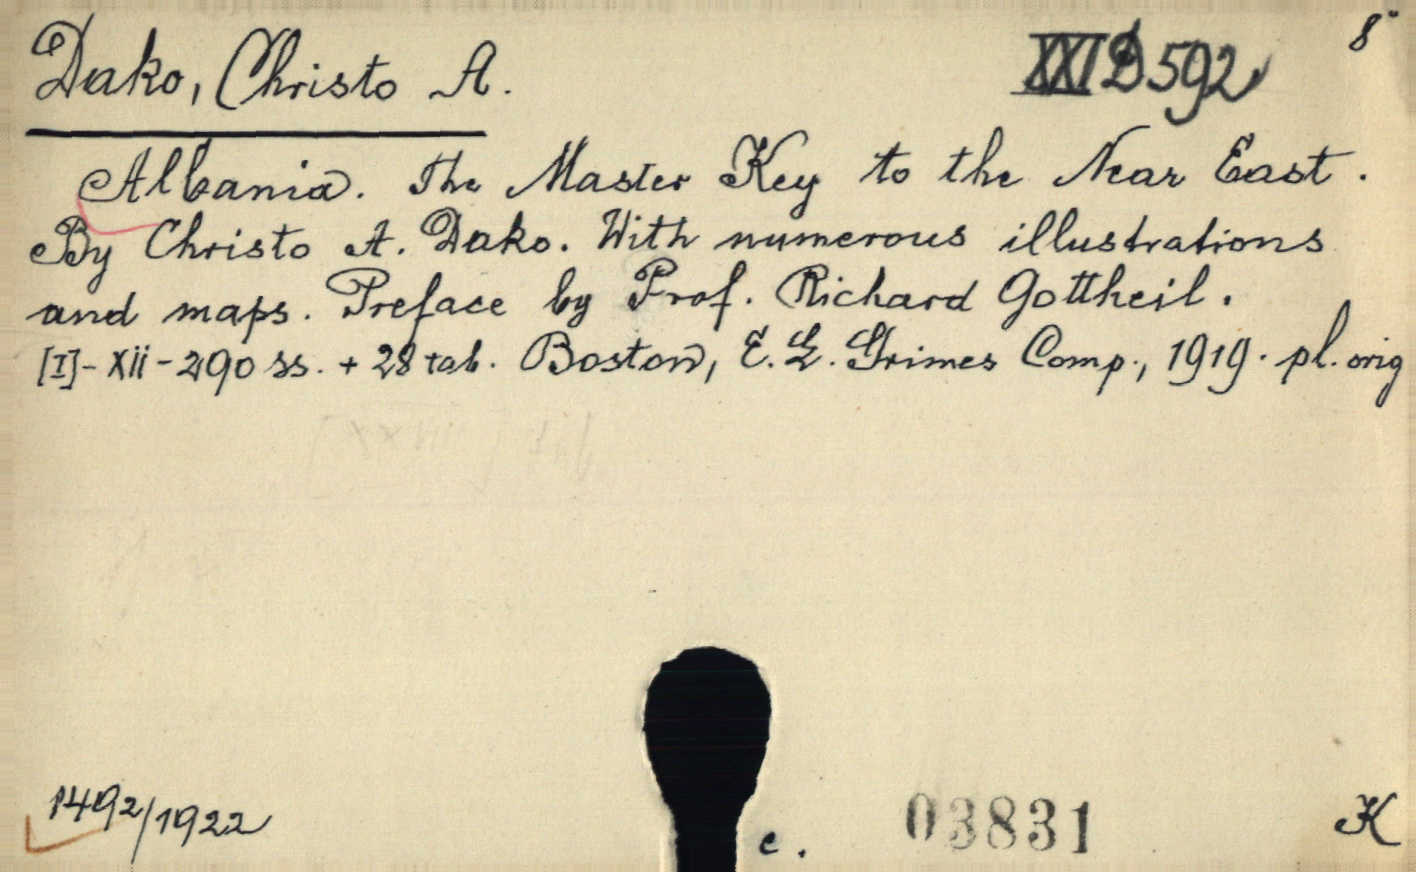 Dako, Christo A.
XXI D 592
8°
Albania. The Master Key to the Near East.
By Christo A. Dako. With numerous illustrations
and maps. Preface by Prof. Richard Gottheil.
[I]-XII-290 ss. + 28 tab. Boston, E. L. Grimes Comp., 1919. pl. orig
1492/1922
c.
03831
K